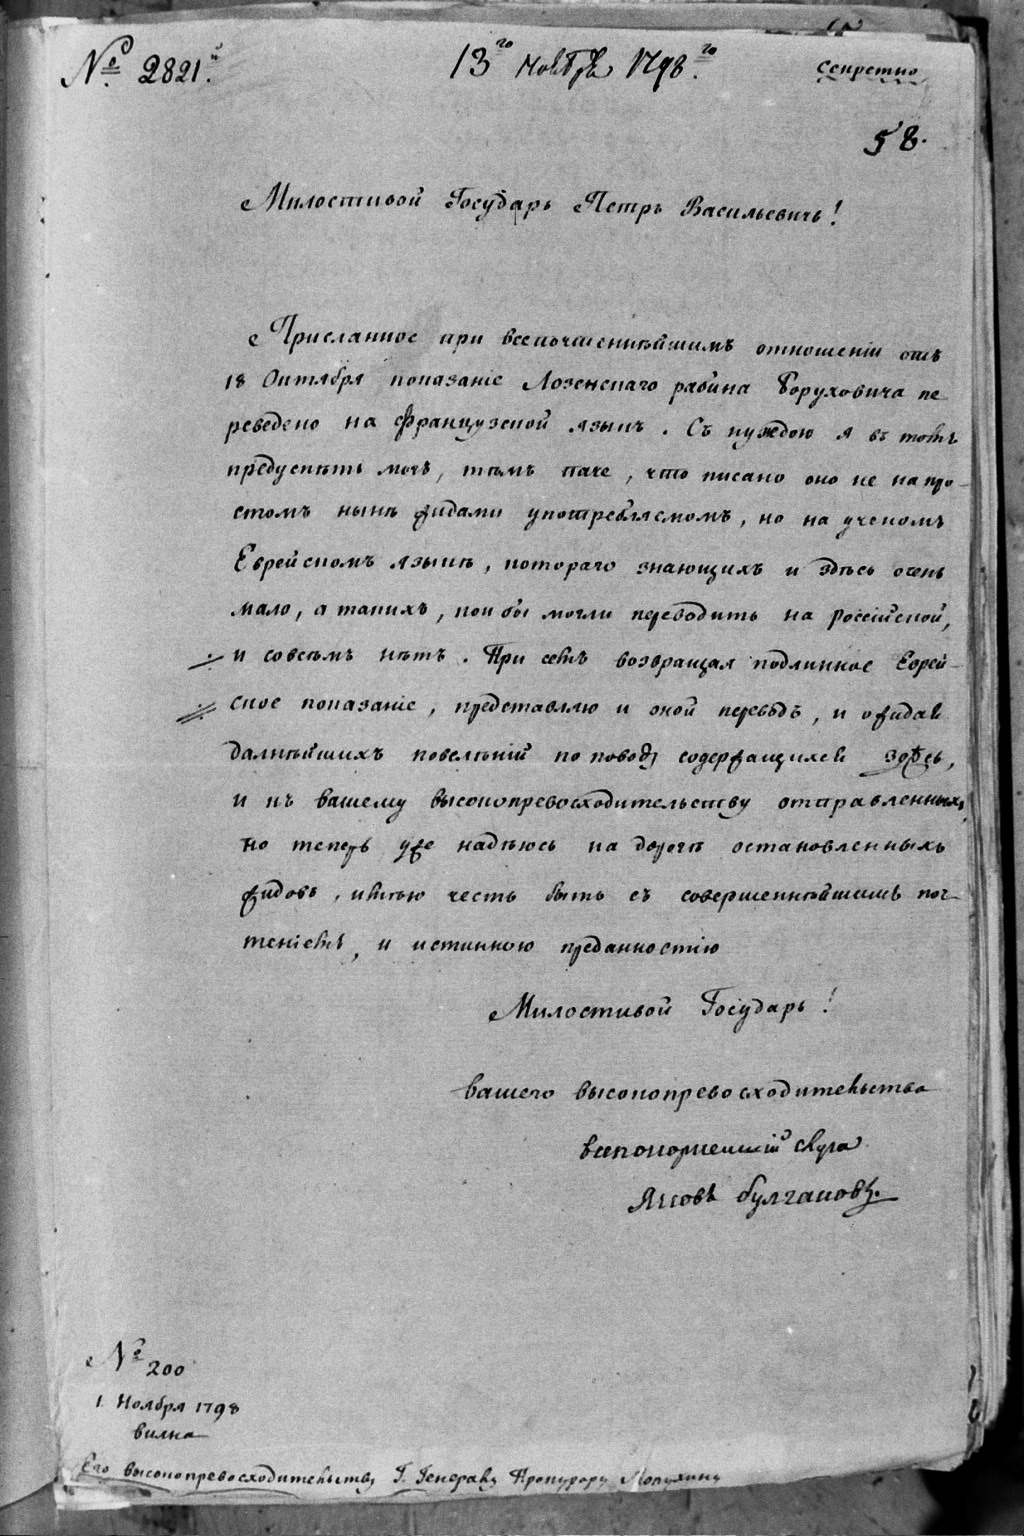 № 2821й.
13го Ноября 1798го.
Секретно
58.
Милостивой Государь Петръ Васильевичь!
Присланное при всепочтеннѣйшимъ отношеніи отъ
18 Октября показаніе Лозенскаго равина Боруховича пе
реведено на французской языкъ. Съ нуждою я въ томъ
предуспѣть могъ, тѣмъ паче, что писано оно не на про-
стомъ нынѣ жидами употребляемомъ, но на ученомъ
Еврейскомъ языкѣ, котораго знающихъ и здѣсь очень
мало, а такихъ, кои бы могли переводить на россійской,
и совсѣмъ нѣтъ. При семъ возвращая подлинное Еврей-
ское показаніе, представляю и оной переводъ, и ожидая
дальнѣйшихъ повелѣній по поводу содержащихся здѣсь,
и къ вашему высокопревосходительству отправленныхъ,
но теперь уже надѣюсь на дорогѣ остановленныхъ
жидовъ, имѣю честь быть съ совершеннѣйшимъ поч-
теніемъ, и истинною преданностію
Милостивой Государь!
вашего высокопревосходительства
всепокорнейшій слуга
Яковъ Булгаковъ.
№ 200
1 Ноября 1798
Вилна
Его высокопревосходительству Г. Генералу Прокурору Лопухину